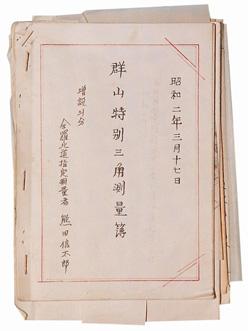 昭和二年三月十七日
群山特別三角測量簿
増設ノ分
全羅北道指定測量者 熊田信太郎